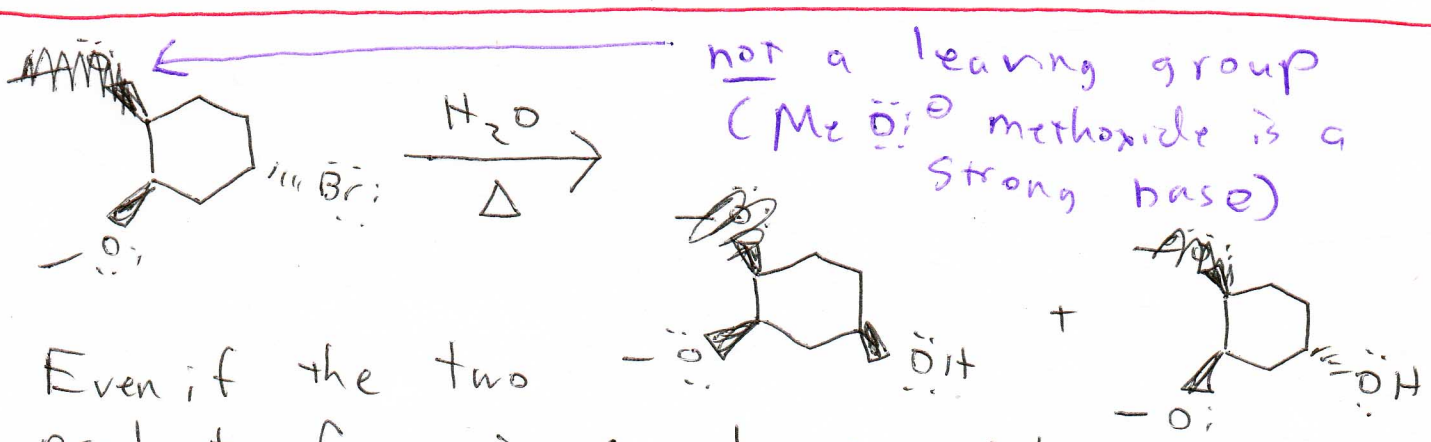 not a leaving group
(Me Ö:⊖ methoxide is a
strong base)
H₂O
Δ
Br:
— O:
+
— O
ÖH
— O:
ÖH
Even if the two